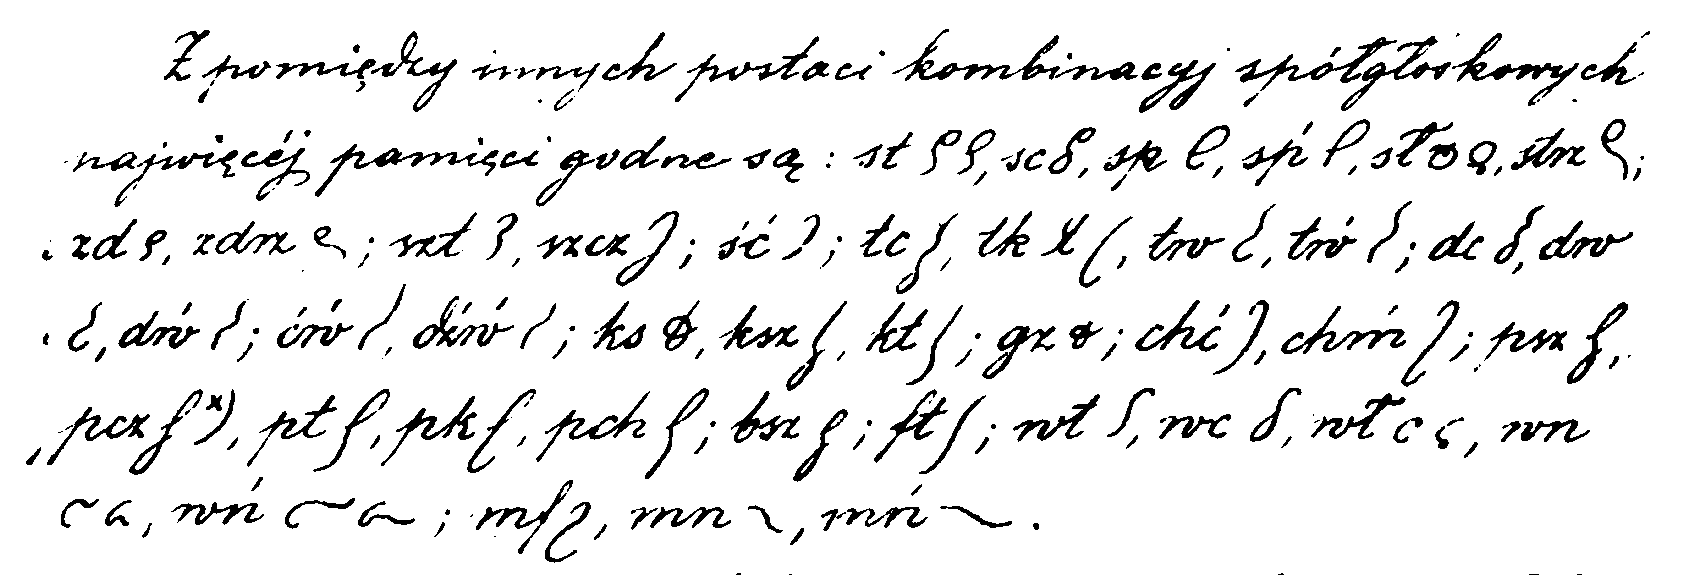 Z pomiędzy innych postaci kombinacyj spółgłoskowych
najwięcéj pamięci godne są: st, sc, sp, sṕ, sł, strz;
zd, zdrz; szt, szcz; ść; tc, tk, trw, trẃ; dc, drw
, drẃ; ćrẃ, dźrẃ; ks, ksz, kt; gz; chć, chrń; psz,
pcz x), pt, pk, pch; bsz; ft; wt, wc, wł, wn
, wń; mf, mn, mń.